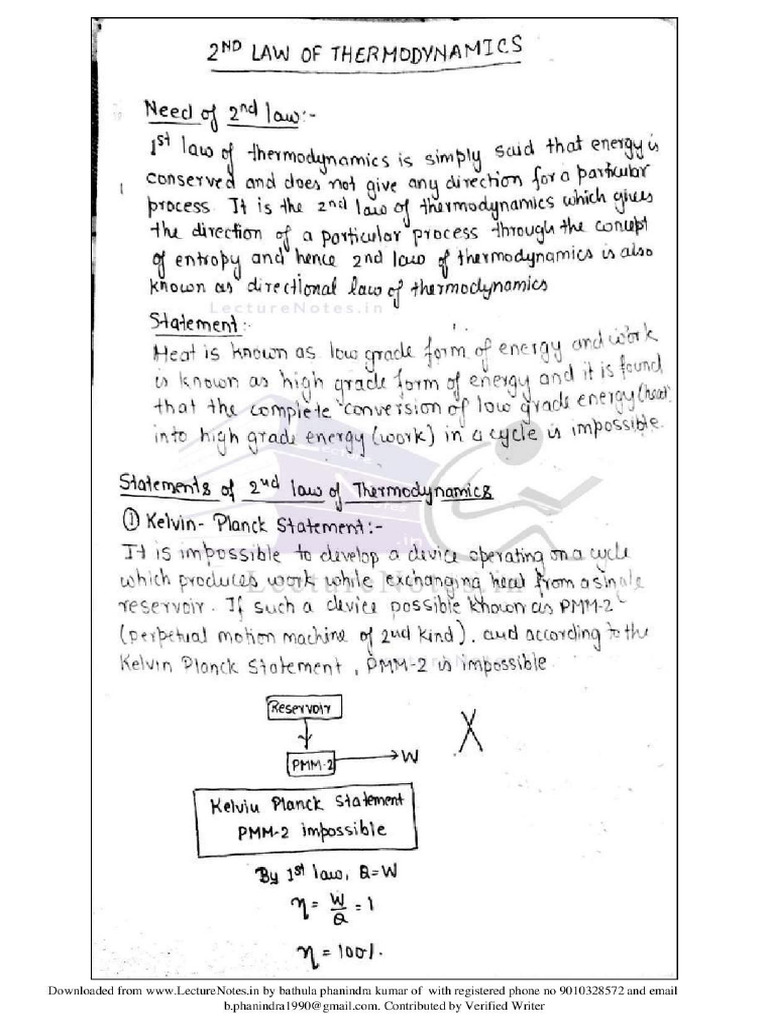 2ND LAW OF THERMODYNAMICS
Need of 2nd law:-
1st law of thermodynamics is simply said that energy is
conserved and does not give any direction for a particular
process. It is the 2nd law of thermodynamics which gives
the direction of a particular process through the concept
of entropy and hence 2nd law of thermodynamics is also
known as directional law of thermodynamics
LectureNotes.in
Statement:-
Heat is known as low grade form of energy and work
is known as high grade form of energy and it is found
that the complete conversion of low grade energy (heat)
into high grade energy (work) in a cycle is impossible.
Statements of 2nd law of Thermodynamics
① Kelvin-Planck Statement:-
It is impossible to develop a device operating on a cycle
which produces work while exchanging heat from a single
LectureNotes.in
reservoir. If such a device possible known as PMM-2
(perpetual motion machine of 2nd kind). and according to the
Kelvin Planck Statement, PMM-2 is impossible
Reservoir
PMM-2 W X
Kelvin Planck Statement
PMM-2 impossible
By 1st law, Q=W
η = W/Q = 1
η = 100%.
Downloaded from www.LectureNotes.in by bathula phanindra kumar of with registered phone no 9010328572 and email
b.phanindra1990@gmail.com. Contributed by Verified Writer